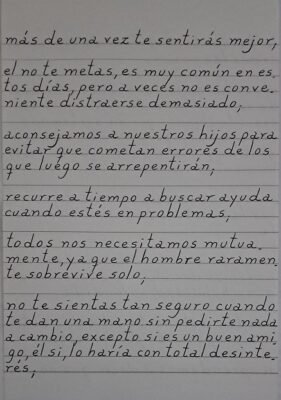 más de una vez te sentirás mejor,
el no te metas, es muy común en es.
tos días, pero a veces no es conve.
niente distraerse demasiado,
aconsejamos a nuestros hijos para
evitar que cometan errores de los
que luego se arrepentirán,
recurre a tiempo a buscar ayuda
cuando estés en problemas,
todos nos necesitamos mutua.
mente, ya que el hombre raramen.
te sobrevive solo,
no te sientas tan seguro cuando
te dan una mano sin pedirte nada
a cambio, excepto si es un buen ami.
go, él si, lo haría con total desinte.
rés,